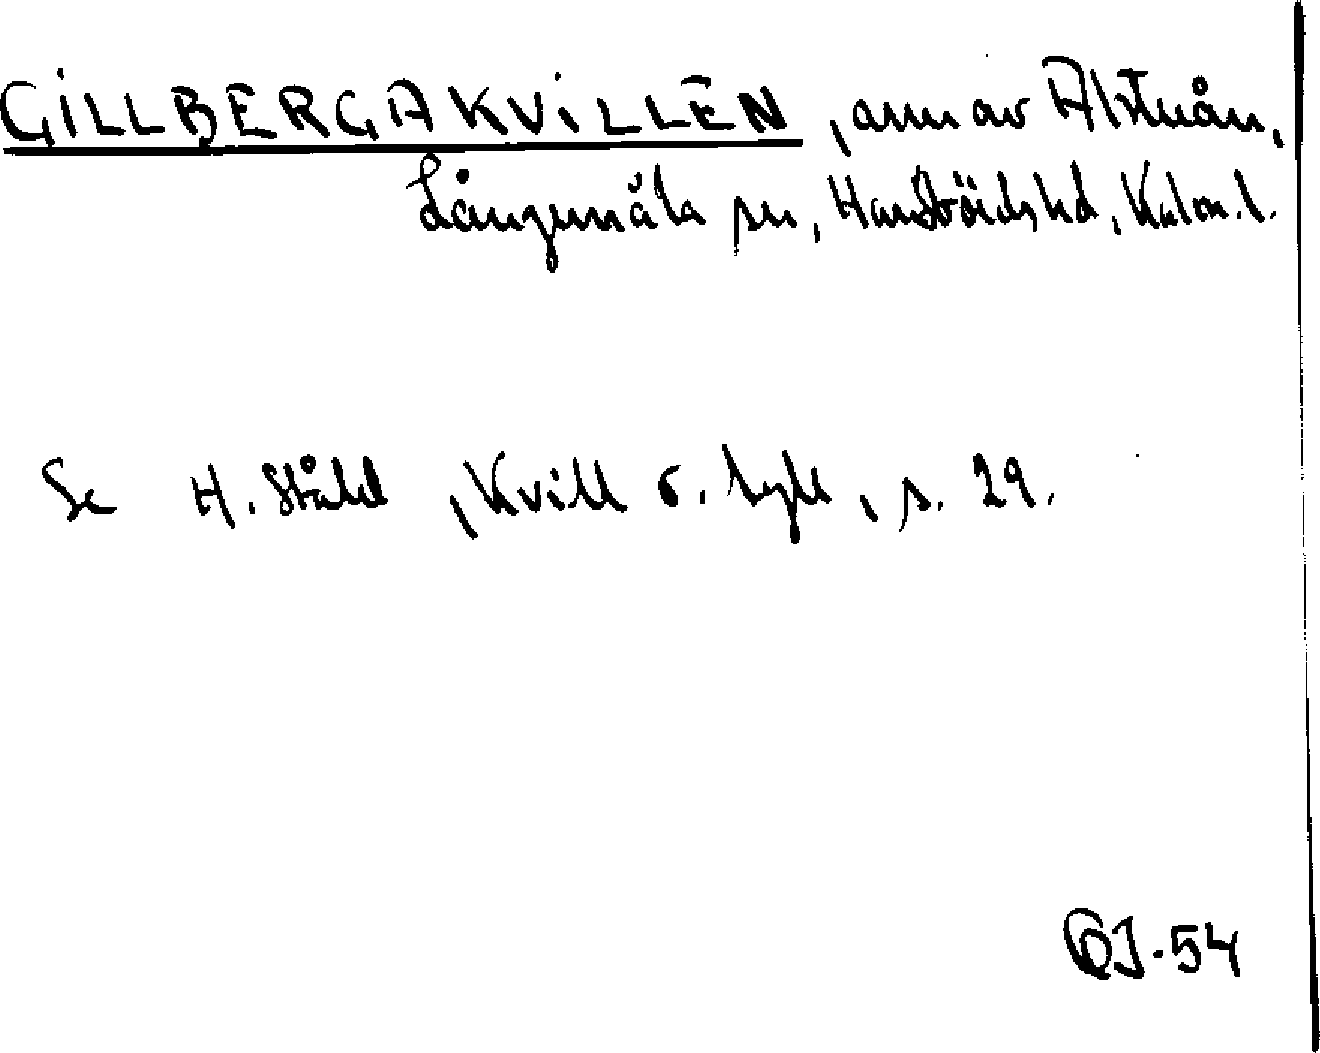 GILLBERGAKVILLEN, arm av Alsterån,
Långemåla sn, Handbörds hd, Kalm. l.
Se H. Ståhl, Kvill o. tyle, s. 29.
-54